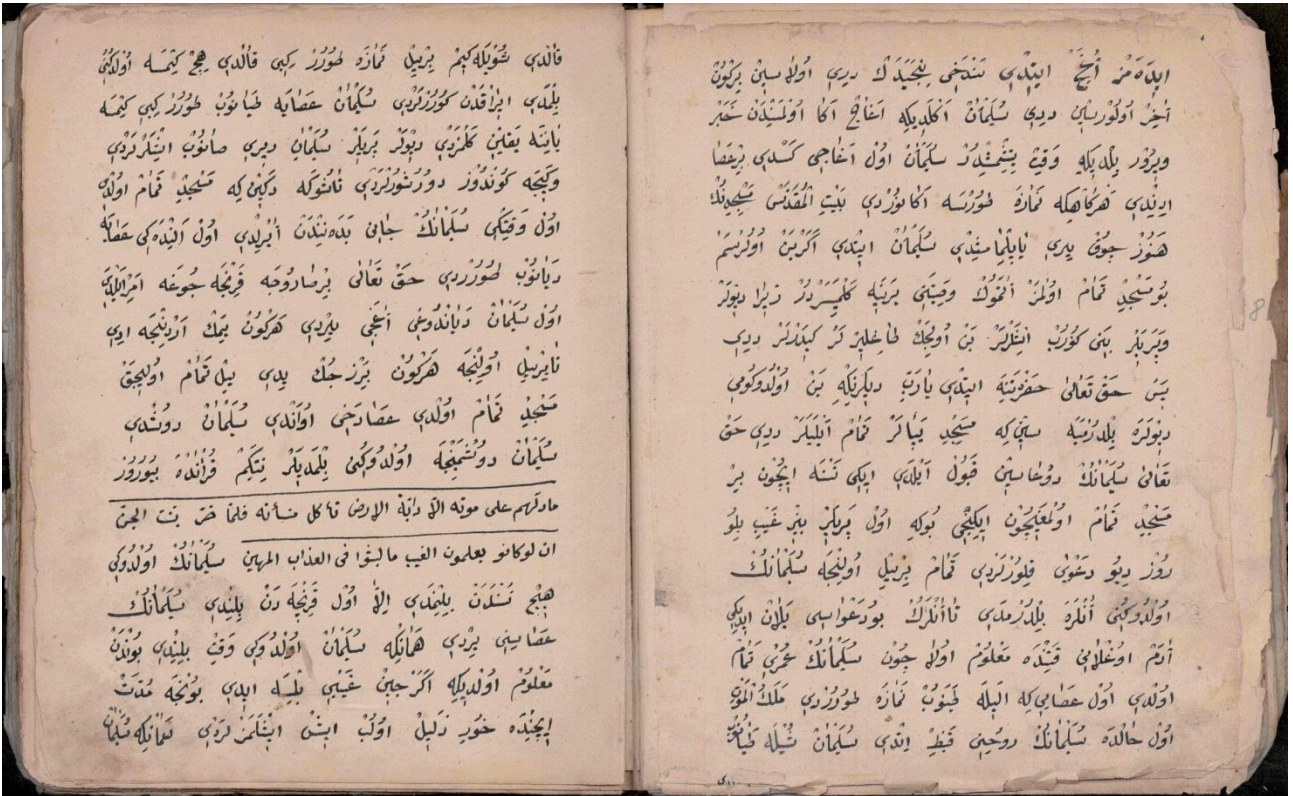 ايده‌مز آخر ايتدي سندخى نيجه‌يدك ديدي اولاسين بركون
آخر اولورسين ديدي سليمان اكلديكه اغاج اكا اولمسيندن خبر
ويرور بلديكه وقت يتمشدر سليمان اول اغاجى كسدي بر عصا
ايدندي هركاهكه نمازه طورسه اكا طورردي بيت المقدس مسجدينك
هنوز چوق ييري ياپلمامشدي سليمان ايتدي اكر بن اولرسم
بو مسجد تمام اولمز المؤك وقتى يرينه كلميسردر زيرا ديولر
و پريلر بنى كورب ايشلرلر بن اوليجك طاغلير لر كيدرلر ديدي
پس حق تعالى حضرتينه ايتدي يا رب ديلرنكه بن اولدوكومى
ديولره بلدرميه سين كه مسجد يپالر تمام ايليلر ديدي حق
تعالى سليمانك دوعاسين قبول ايلدي ايكى نسنه ايچون بر
مسجد تمام اولمغيچون ايكنجى بوكه اول پريلر بيز غيب بلو
روز ديو دعوى قلورلردي تمام بر ييل اولنجه سليمانك
اولدوكنى انلره بلدرمدي تا انلرك بو دعواسى يلان ايديكى
آدم اوغلانى قتنده معلوم اولا چون سليمانك عمرى تمام
اولدي اول عصايى كه اليله طينوب نمازه طوررردي ملك الموت
اول حالده سليمانك روحنى قبض اتدي سليمان شيله طيانو
قالدي شويله كيم بر ييل نمازه طورر كبى قالدي هيچ كيمسه اولدكنى
بلمدي ايراقدن كوررلردي سليمان عصايه طيانوب طورر كبى كيمسه
ياننه يقلين كلمزدي ديولر پريلر سليمان ديري صانوب ايشلرلردي
و كيجه كوندوز دورشورلردي تا شوكه دكين كه مسجد تمام اولدى
اول وقتكى سليمانك جانى بدنيندن ايرلدي اول النده كى عصايه
ديانوب طورردي حق تعالى بر صاروجه قرنجه جوغه امر ايلدى
اول سليمان دياندوغى اغجى ييردي هركون يمك اردنيجه ايدي
تا بر ييل اولنجه هركون بر رزجك يدي ييل تمام اوليجق
مسجد تمام اولدي عصا دخى اواندي سليمان دوشدي
سليمان دوشمينجه اولدوكنى بلمديلر نتكم قرآنده بيورور
ما دلهم على موته الا دابة الارض تأكل منسأته فلما خر تبينت الجن
ان لو كانو يعلمون الغيب ما لبثوا فى العذاب المهين سليمانك اولدوكى
هيچ نسندن بلنمدي الا اول قرنجه دن بلندي سليمانك
عصاسينى يردي همانكه سليمان اولدوكى وقت بلندي بوندن
معلوم اولديكه اكر جن غيبى بلسه ايدي بونجه مدت
ايچنده خور ذليل اولب ايش ايشلمزلردي همانكه سليمان